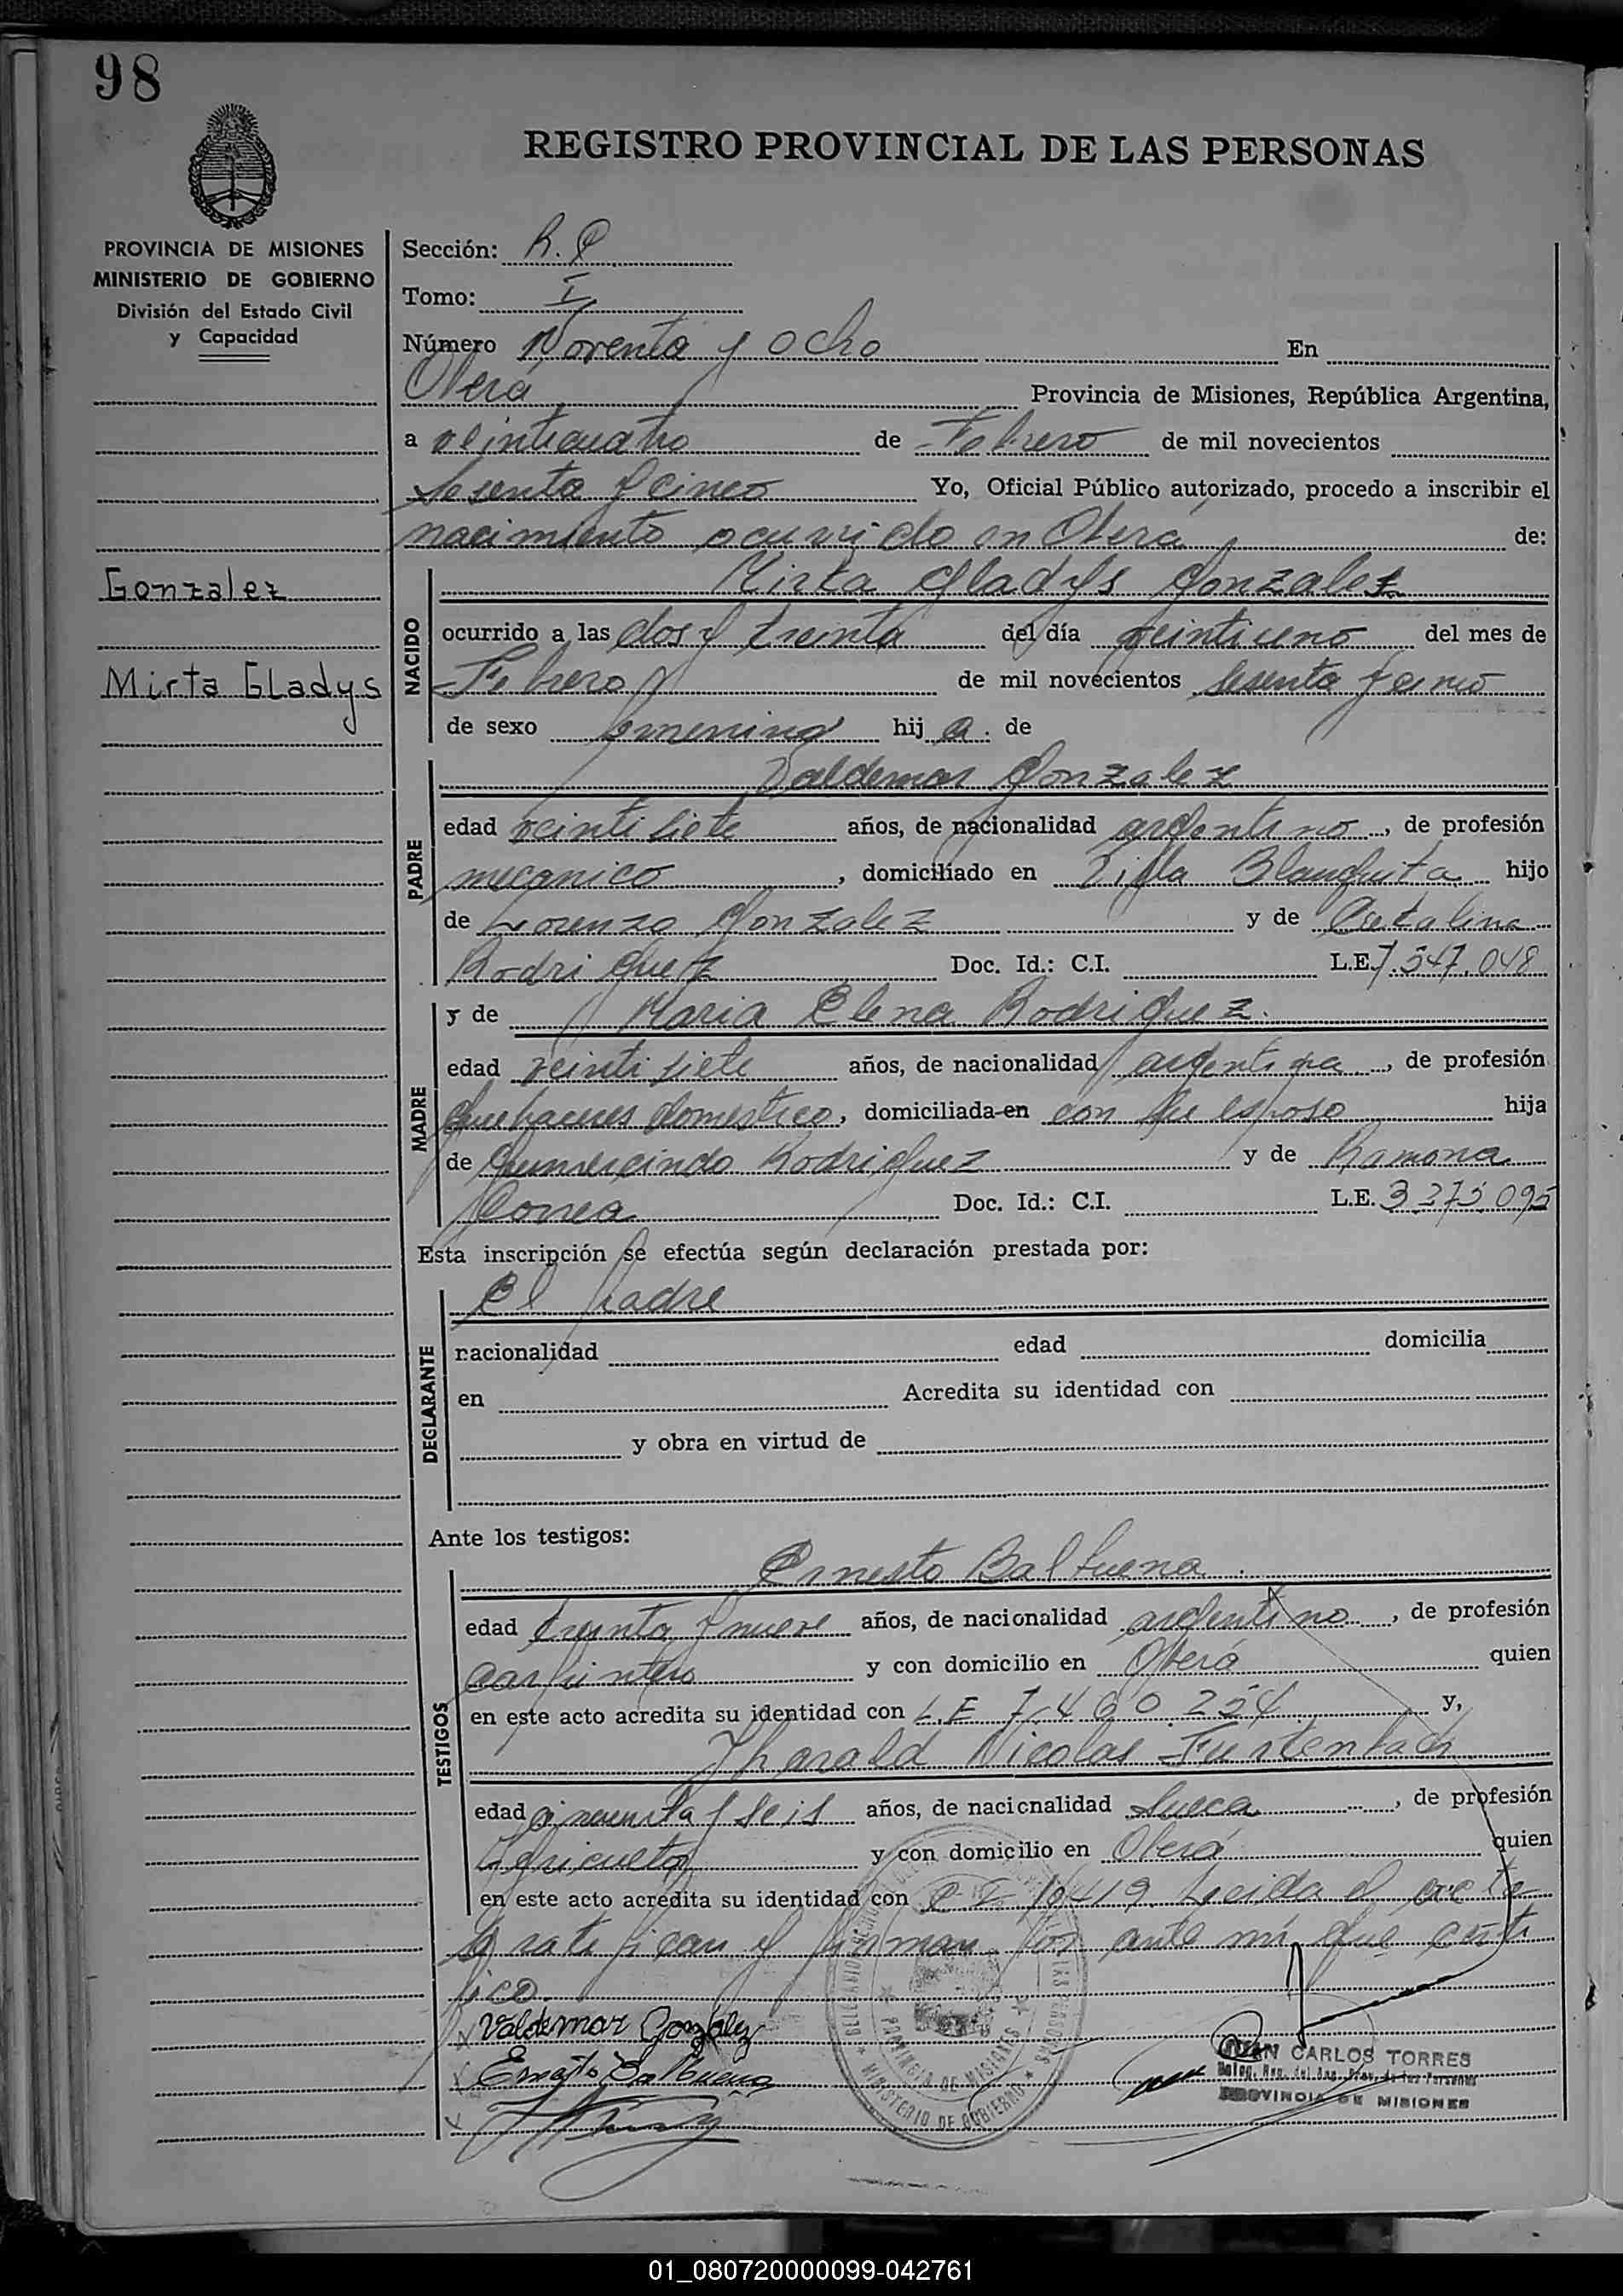 98
REGISTRO PROVINCIAL DE LAS PERSONAS
PROVINCIA DE MISIONES
MINISTERIO DE GOBIERNO
División del Estado Civil
y Capacidad
Gonzalez
Mirta Gladys
Sección:
Tomo: I
Número Noventa y ocho En
Oberá Provincia de Misiones, República Argentina,
a veinticuatro de Febrero de mil novecientos
Sesenta y cinco Yo, Oficial Público autorizado, procedo a inscribir el
nacimiento ocurrido en Oberá de:
NACIDO
Mirta Gladys Gonzalez
ocurrido a las dos y treinta del día veintiuno del mes de
Febrero de mil novecientos sesenta y cinco
de sexo femenino hij a. de
PADRE
Valdemar Gonzalez
edad veintisiete años, de nacionalidad argentino, de profesión
mecanico, domiciliado en Villa Blanquita hijo
de Lorenzo Gonzalez y de Catalina
Rodriguez Doc. Id.: C.I. L.E. 7.547.048
MADRE
y de Maria Elena Rodriguez.
edad veintisiete años, de nacionalidad argentina, de profesión
quehaceres domestico, domiciliada en con su esposo hija
de Gumercindo Rodriguez y de Ramona
Correa Doc. Id.: C.I. L.E. 3.273.095
Esta inscripción se efectúa según declaración prestada por:
DECLARANTE
El padre
nacionalidad edad domicilia
en Acredita su identidad con
y obra en virtud de
Ante los testigos:
TESTIGOS
Ernesto Balbuena
edad treinta y nueve años, de nacionalidad argentino, de profesión
carpintero y con domicilio en Oberá quien
en este acto acredita su identidad con L.E 7.460.254 y,
Thorald Nicolas Furstenbach
edad cincuenta y seis años, de nacionalidad Sueca, de profesión
Agricultor y con domicilio en Oberá quien
en este acto acredita su identidad con C I 10419. Leida el acta
la ratifican y firman por ante mí que certi
fico.
Valdemar González
Ernesto Balbuena
JUAN CARLOS TORRES
PROVINCIA DE MISIONES
PROVINCIA DE MISIONES
MINISTERIO DE GOBIERNO
01_080720000099-042761